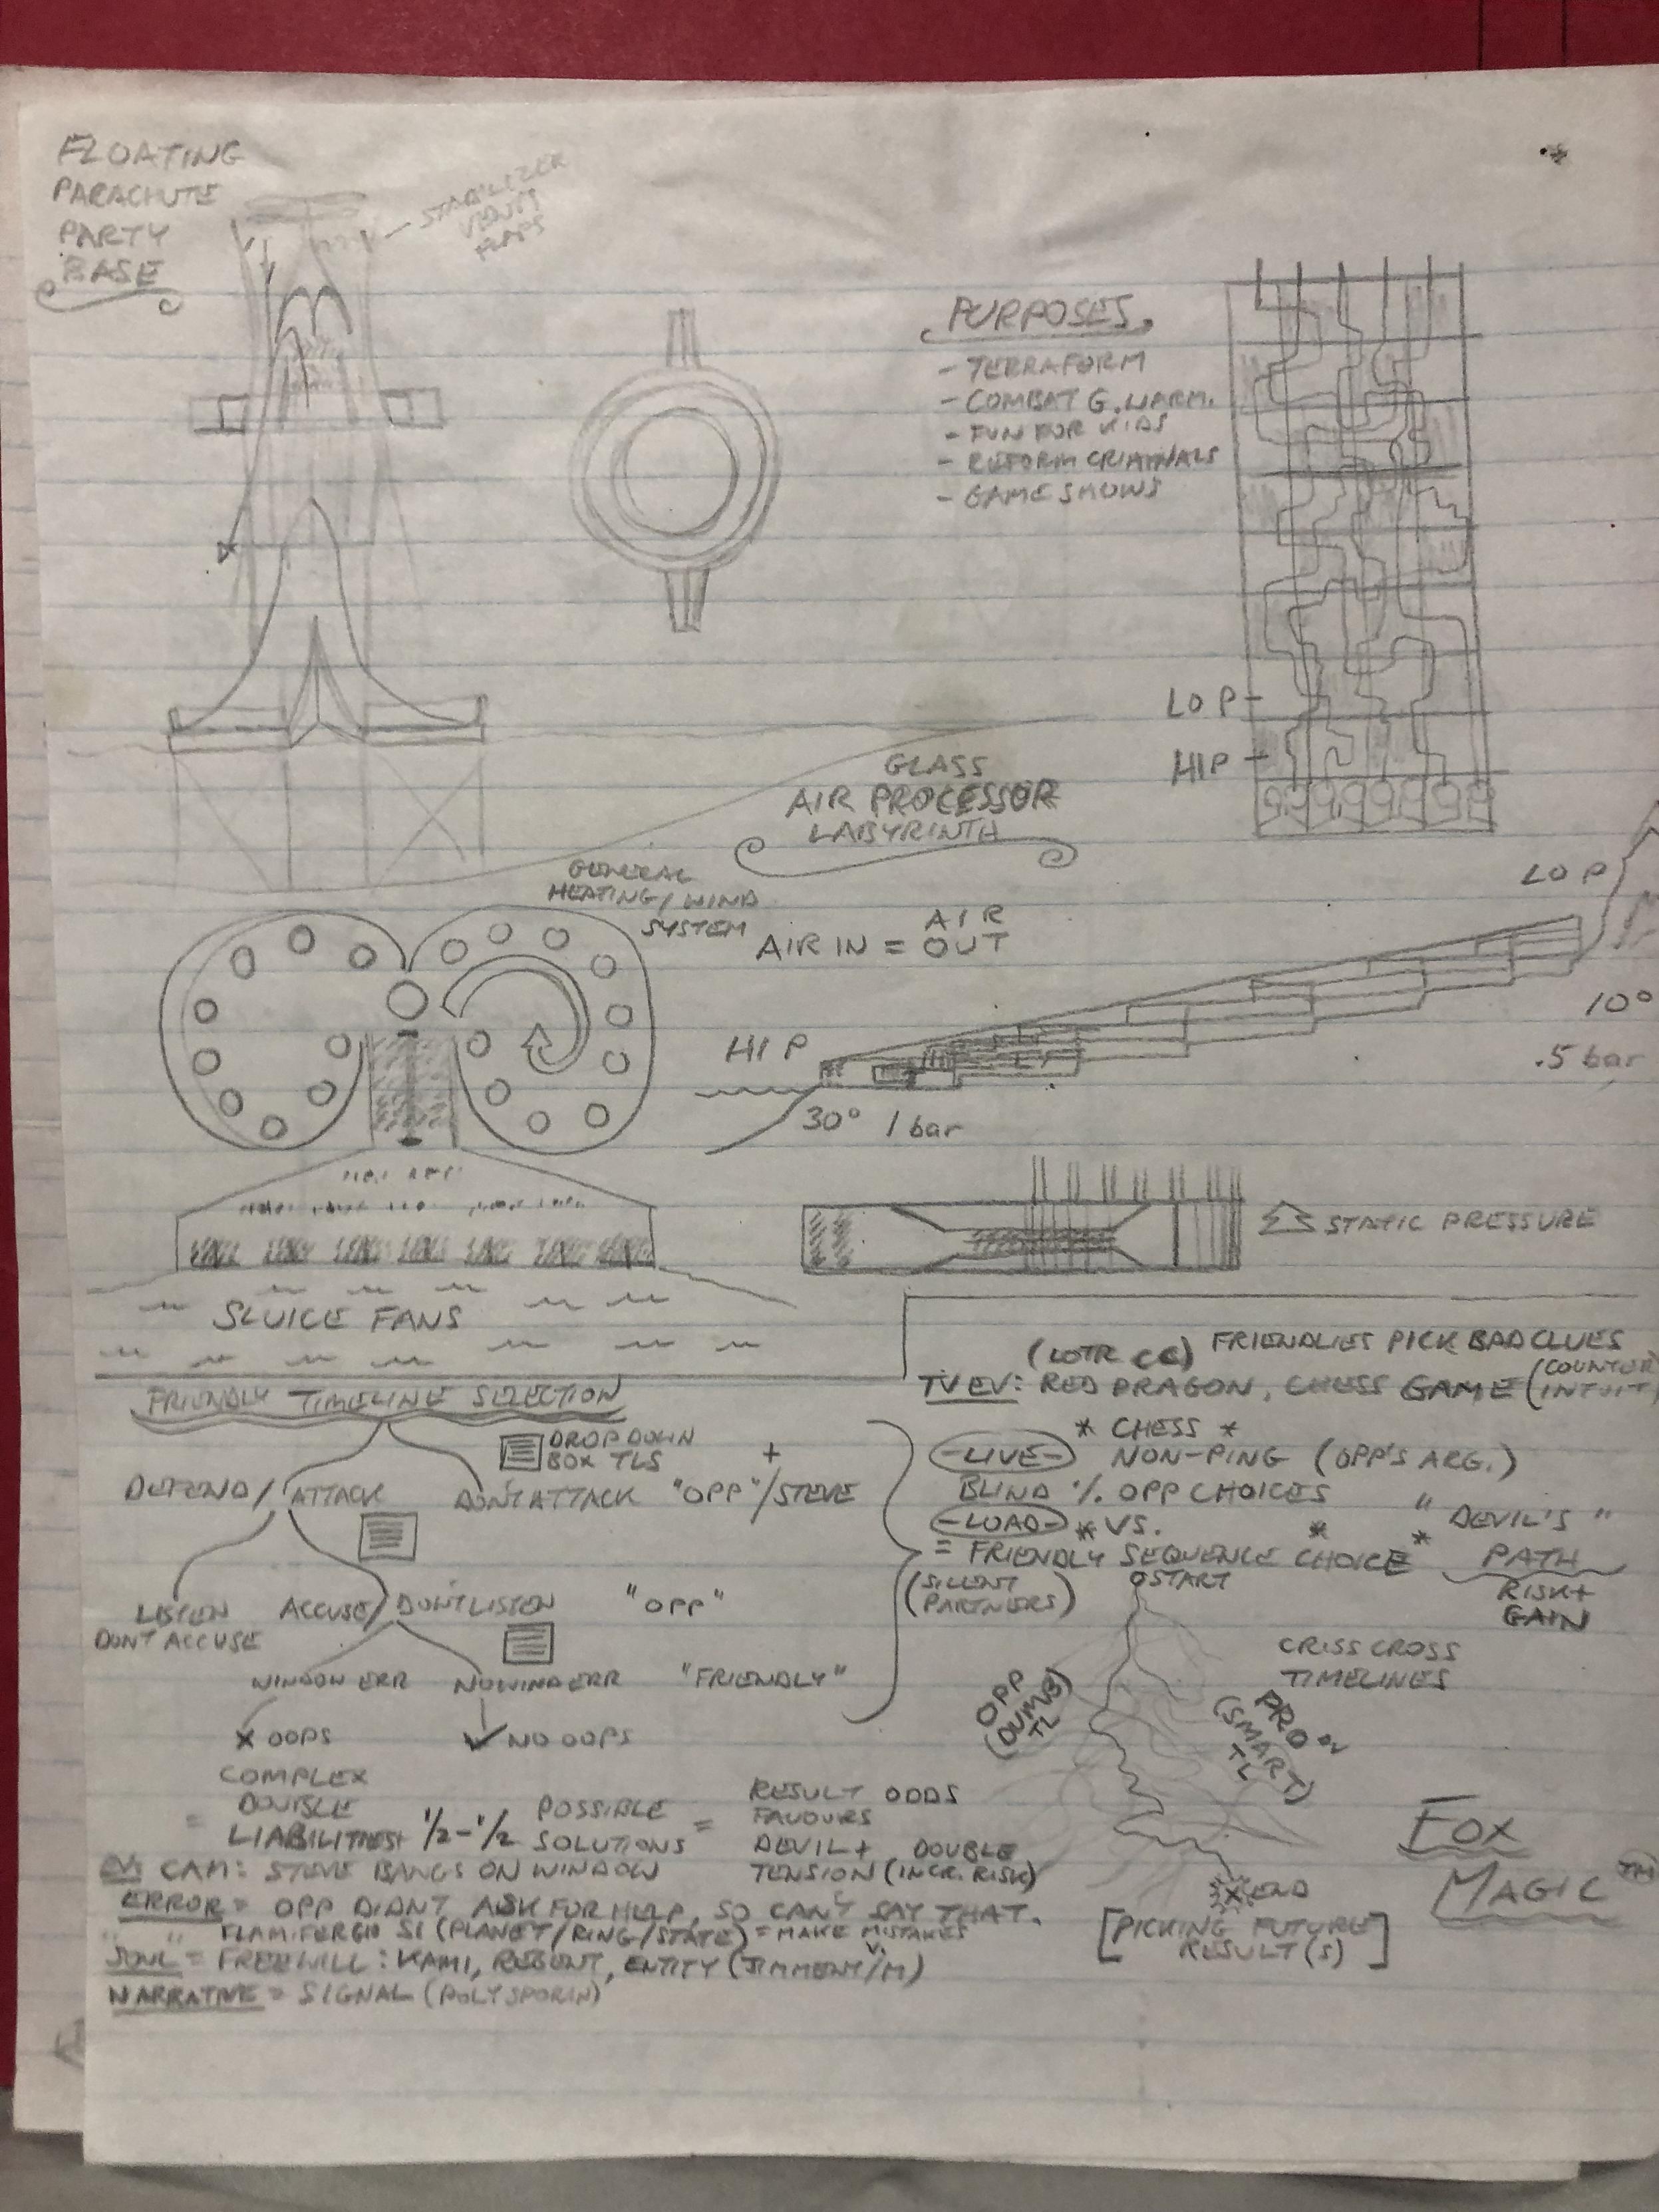 FLOATING
PARACHUTE
PARTY
BASE
STABILIZER
VENTS
FLAPS
PURPOSES
- TERRAFORM
- COMBAT G. WARM.
- FUN FOR KIDS
- REFORM CRIMINALS
- GAME SHOWS
LO P
HI P
GLASS
AIR PROCESSOR
LABYRINTH
GENERAL
HEATING/WIND
SYSTEM
AIR IN = AIR OUT
LO P
10°
.5 bar
HI P
30° 1 bar
STATIC PRESSURE
SLUICE FANS
FRIENDLY TIMELINE SELECTION
DROP DOWN
BOX TLS
+
DEFEND/ATTACK DON'T ATTACK "OPP"/STEVE
LISTEN ACCUSE/DON'T LISTEN "OPP"
DON'T ACCUSE
WINDOW ERR NO WIND ERR "FRIENDLY"
X OOPS ✓ NO OOPS
= COMPLEX DOUBLE LIABILITIES+ 1/2-1/2 POSSIBLE SOLUTIONS = RESULT ODDS FAVOURS DEVIL + DOUBLE TENSION (INCR. RISK)
EV: CAM: STEVE BANGS ON WINDOW
ERROR = OPP DIDNT ASK FOR HELP, SO CAN'T SAY THAT.
" " FLAMIFERGIO SI (PLANET/RING/STATE) = MAKE MISTAKES
SOUL = FREEWILL: KAMI, REGENT, ENTITY
NARRATIVE = SIGNAL (POLYSPORIN)
(LOTR CC) FRIENDLIES PICK BAD CLUES
TV EV: RED DRAGON, CHESS GAME (COUNTER INTUIT
* CHESS *
-LIVE- NON-PING (OPP'S ARG.)
BLIND % OPP CHOICES
-LOAD- * VS. * "DEVIL'S"
= FRIENDLY SEQUENCE CHOICE * PATH
(SILENT PARTNERS)
START
RISK+
GAIN
CRISS CROSS
TIMELINES
OPP
(DUMB)
TL
PRO or
(SMART)
TL
END
[PICKING FUTURE
RESULT(S)]
FOX
MAGIC TM